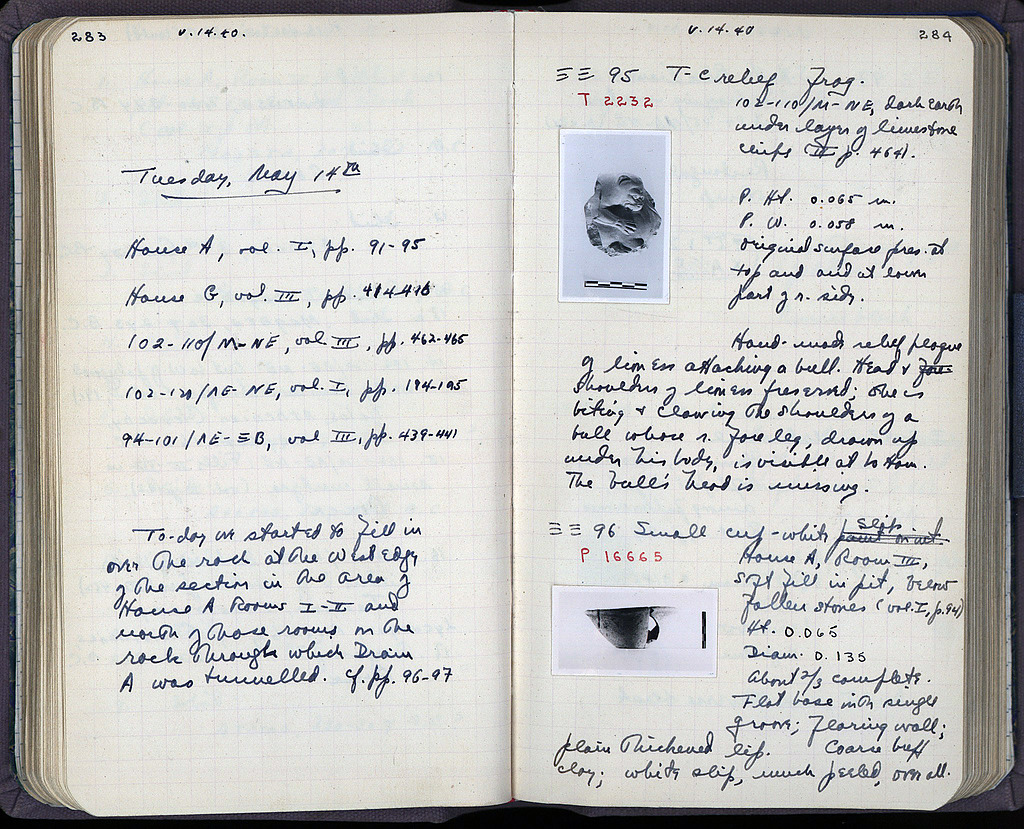 283
V.14.40.
Tuesday, May 14th
House A, vol. I, pp. 91-95
House G, vol. III, pp. 414-416
102-110/M-NE, vol. III, pp. 462-465
102-120/ΛE-NE, vol. I, pp. 194-195
94-101/ΛE-ΞB, vol III, pp. 439-441
To-day we started to fill in
over the rock at the west edge
of the section in the area of
House A Rooms I-II and
north of those rooms in the
rock through which Drain
A was tunnelled. cf. pp. 96-97
V.14.40
284
ΞΞ 95 T-C relief Frag.
T 2232
102-110/M-NE, dark earth
under layer of limestone
chips (III p. 464).
P. Ht. 0.065 m.
P. W. 0.058 m.
Original surface pres. at
top and and at lower
part of r. side.
Hand-made relief plaque
of lioness attacking a bull. Head & fore
shoulders of lioness preserved; she is
biting & clawing the shoulders of a
bull whose r. foreleg, drawn up
under his body, is visible at bottom.
The bull's head is missing.
ΞΞ 96 Small cup - white slip
P 16665
House A, Room III,
soft fill in pit, below
fallen stones (vol. I, p. 94)
Ht. 0.065
Diam. 0.135
About 2/3 complete.
Flat base with single
groove; flaring wall;
plain thickened lip. Coarse buff
clay; white slip, much peeled, over all.